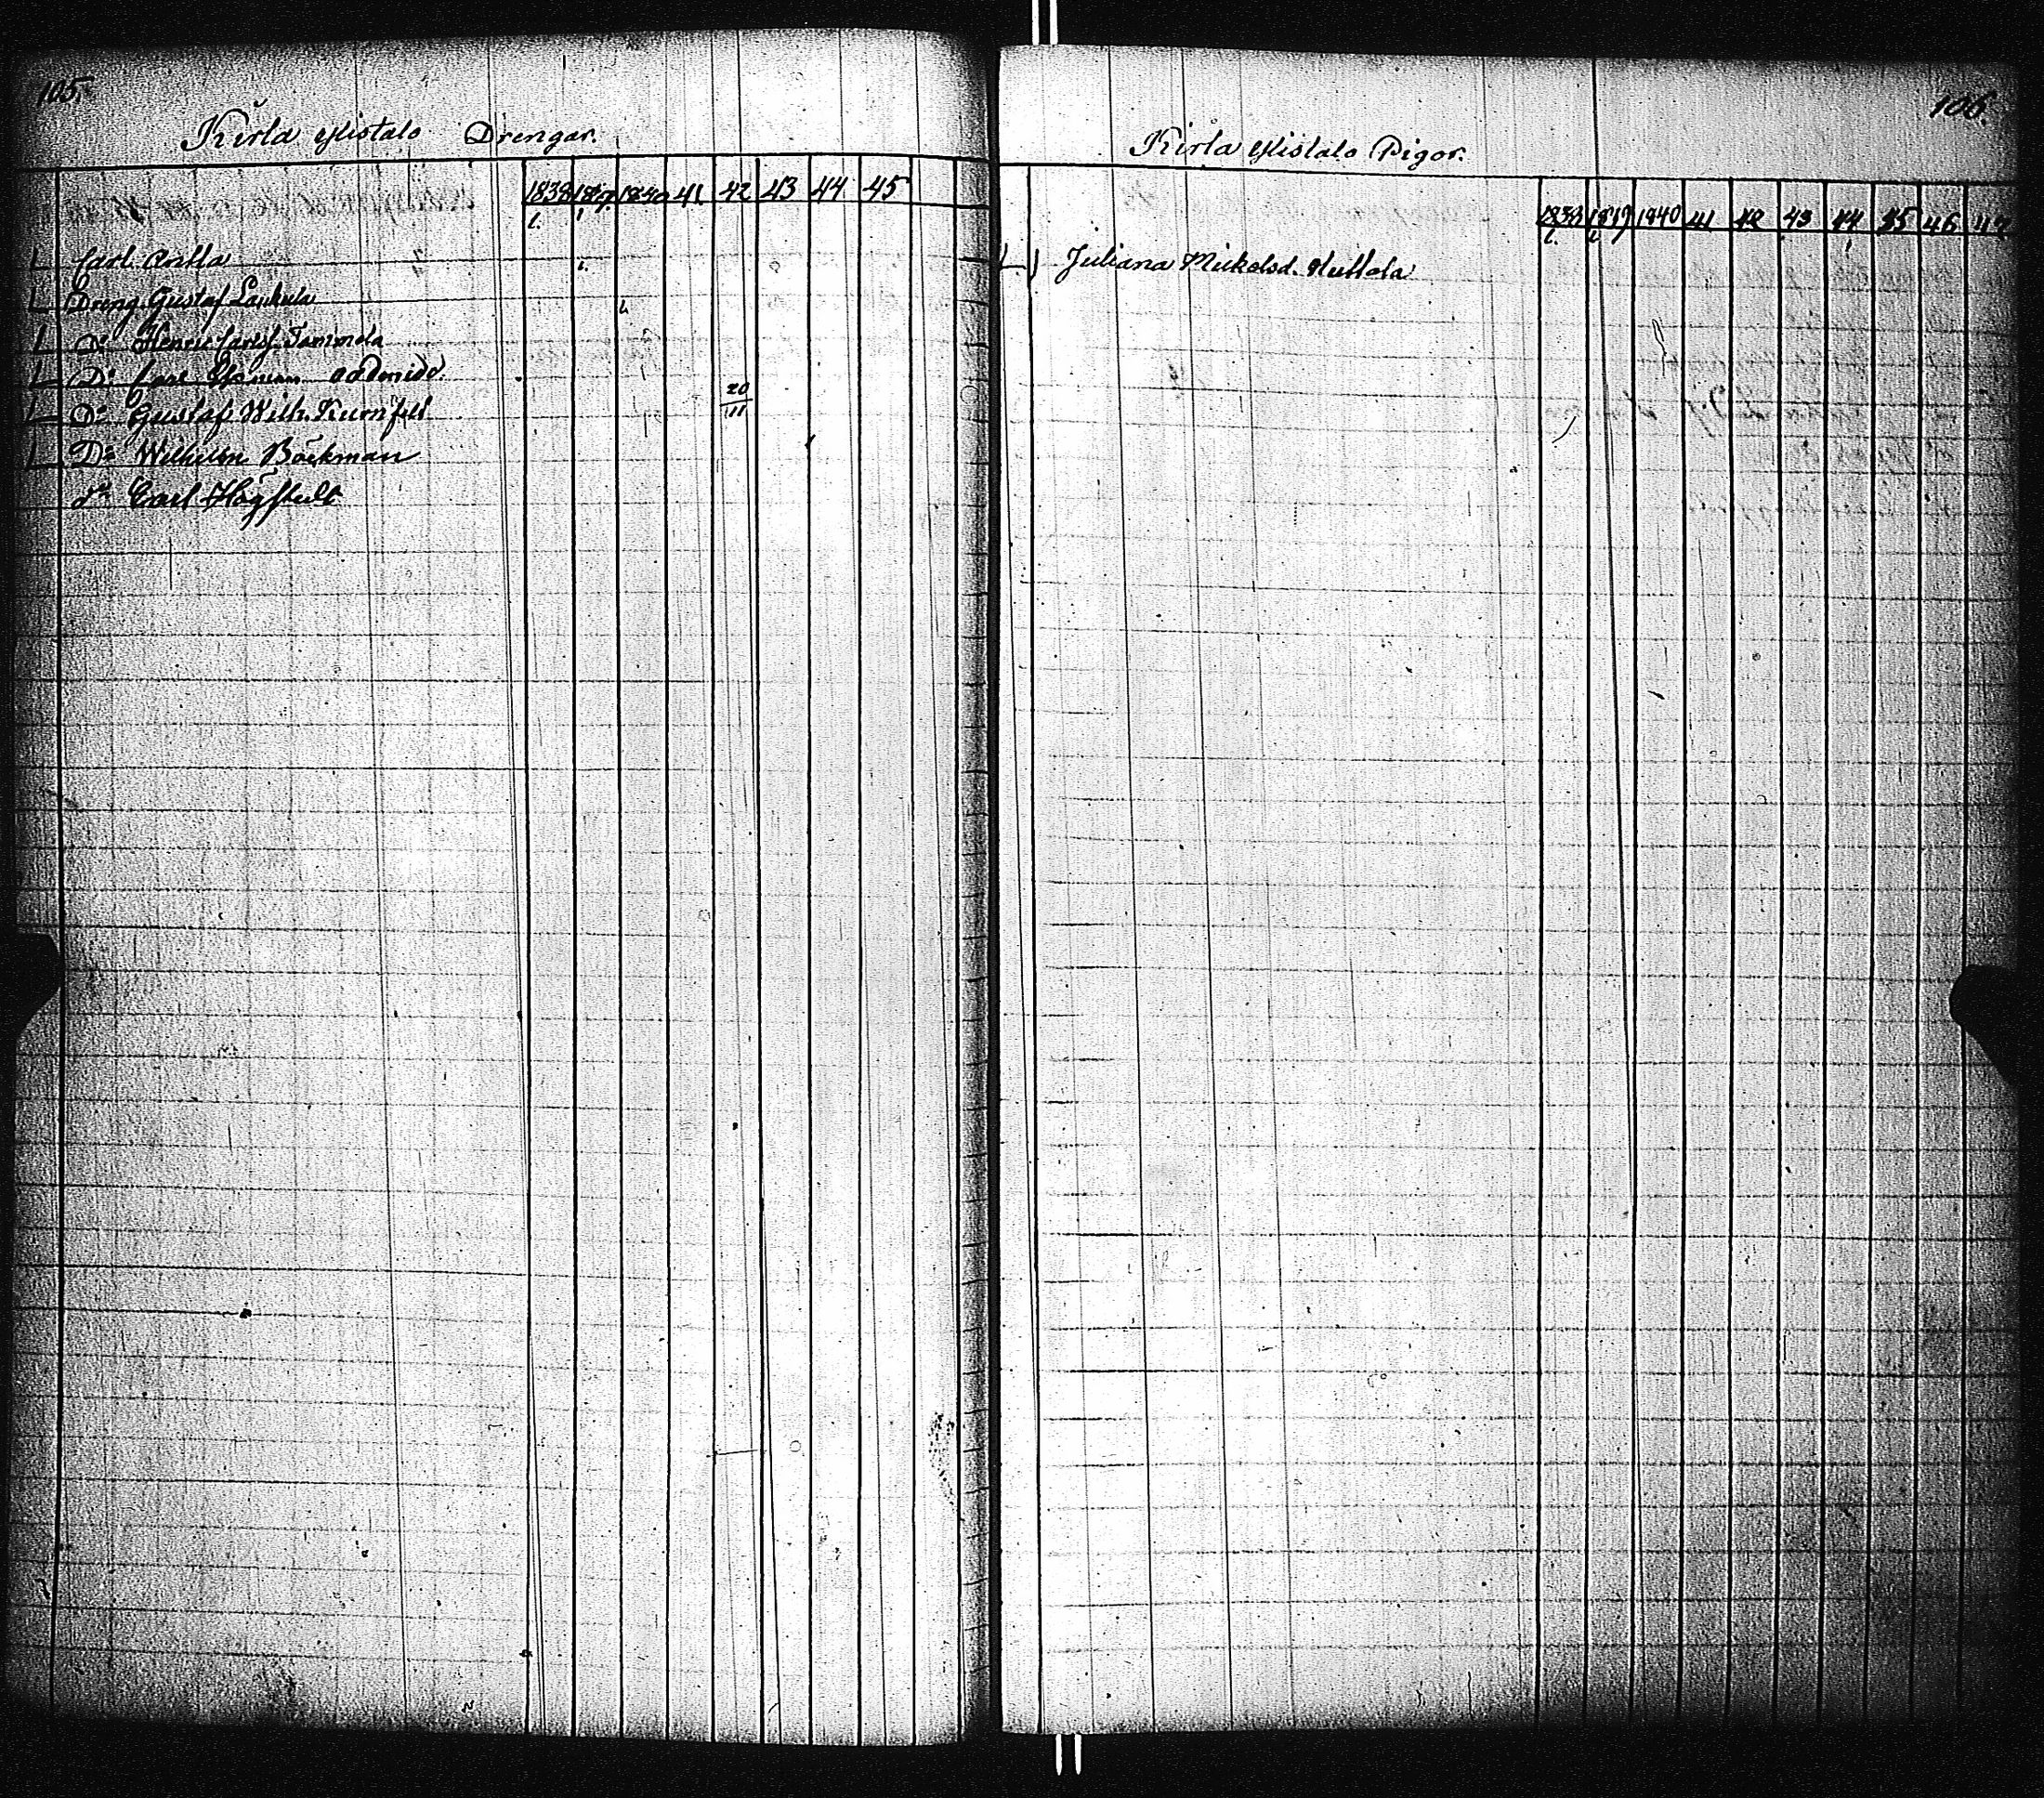 105.
Kirla Ylistalo Drengar.
1838 1839 1840 41 42 43 44 45
Carl Antla
Dreng Gustaf Laukula
Do Henric Tammela
Do Carl
20
11
Do Gustaf Wilh. Kumfelt
Do Wilhelm Böckman
do Carl Högfelt
106.
Kirla Ylistalo Pigor.
1838 1839 1840 41 42 43 44 45 46 47
Juliana Mickelsd. Huttala